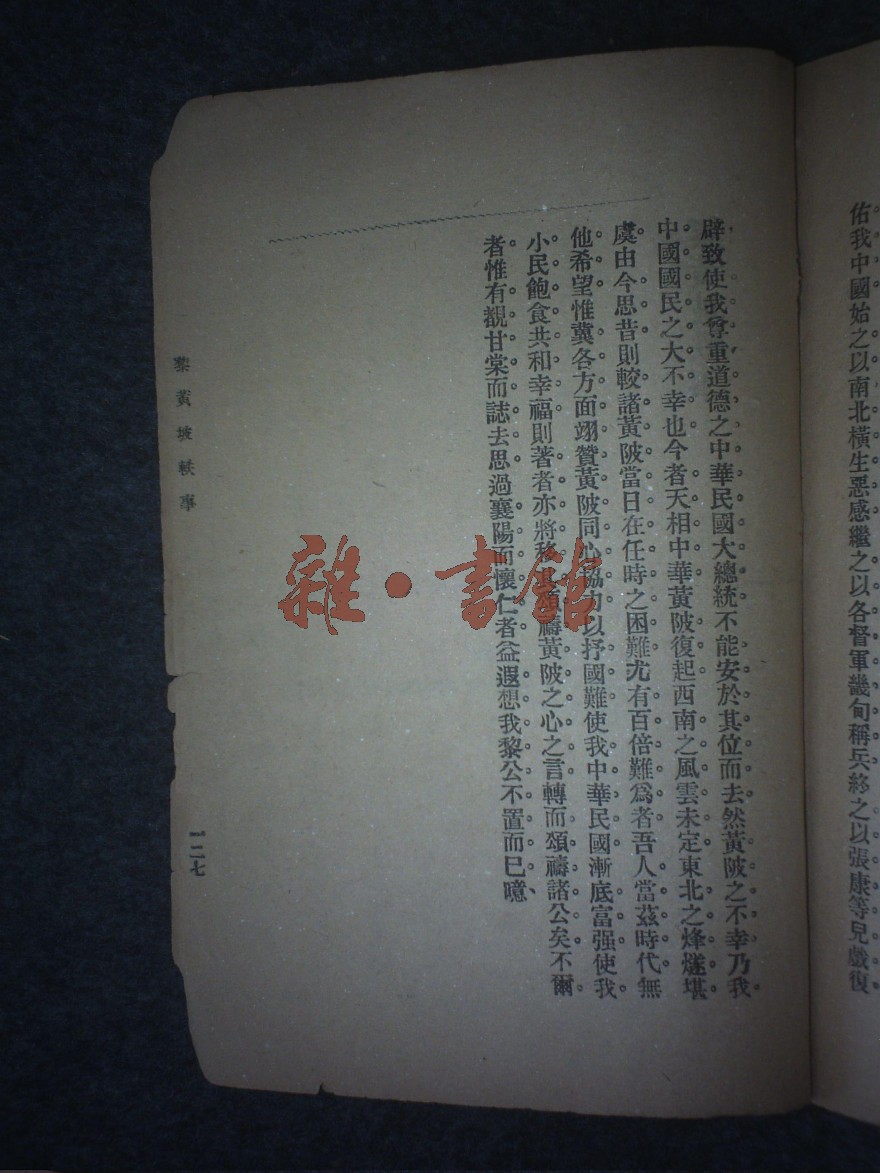 佑我中國始之以南北橫生惡感繼之以各督軍畿甸稱兵終之以張康等兒戲復
辟致使我尊重道德之中華民國大總統不能安於其位而去然黃陂之不幸乃我
中國國民之大不幸也今者天相中華黃陂復起西南之風雲未定東北之烽燧堪
虞由今思昔則較諸黃陂當日在任時之困難尤有百倍難爲者吾人當茲時代無
他希望惟冀各方面翊贊黃陂同心協力以抒國難使我中華民國漸底富强使我
小民飽食共和幸福則著者亦將移其頌禱黃陂之心之言轉而頌禱諸公矣不爾
者惟有覩甘棠而誌去思過襄陽而懷仁者益遐想我黎公不置而已噫、
黎黃坡軼事
一二七
雜·書館